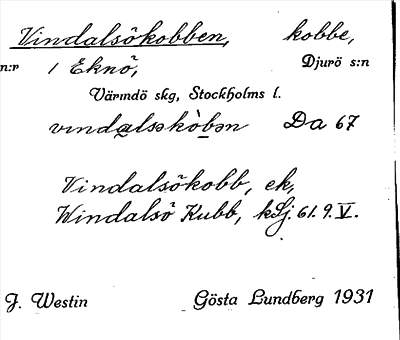 Vindalsökobben, kobbe,
n:r 1 Eknö, Djurö s:n
Värmdö skg, Stockholms l.
vındalsəkòbən Da 67
Vindalsökobb, ek,
Windalsö Kubb, kSj. 61. 9. V.
J. Westin Gösta Lundberg 1931